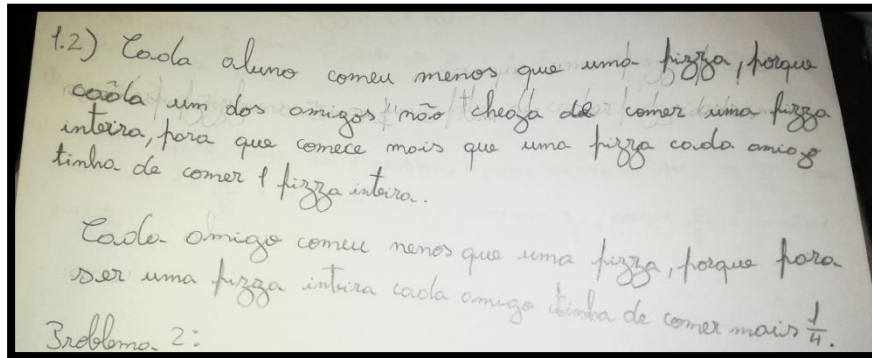 1.2) Cada aluno comeu menos que uma pizza, porque
cada um dos amigos não chega de comer uma pizza
inteira, para que comece mais que uma pizza cada amigo
tinha de comer 1 pizza inteira.
Cada amigo comeu menos que uma pizza, porque para
ser uma pizza inteira cada amigo tinha de comer mais 1/4.
Problema 2: